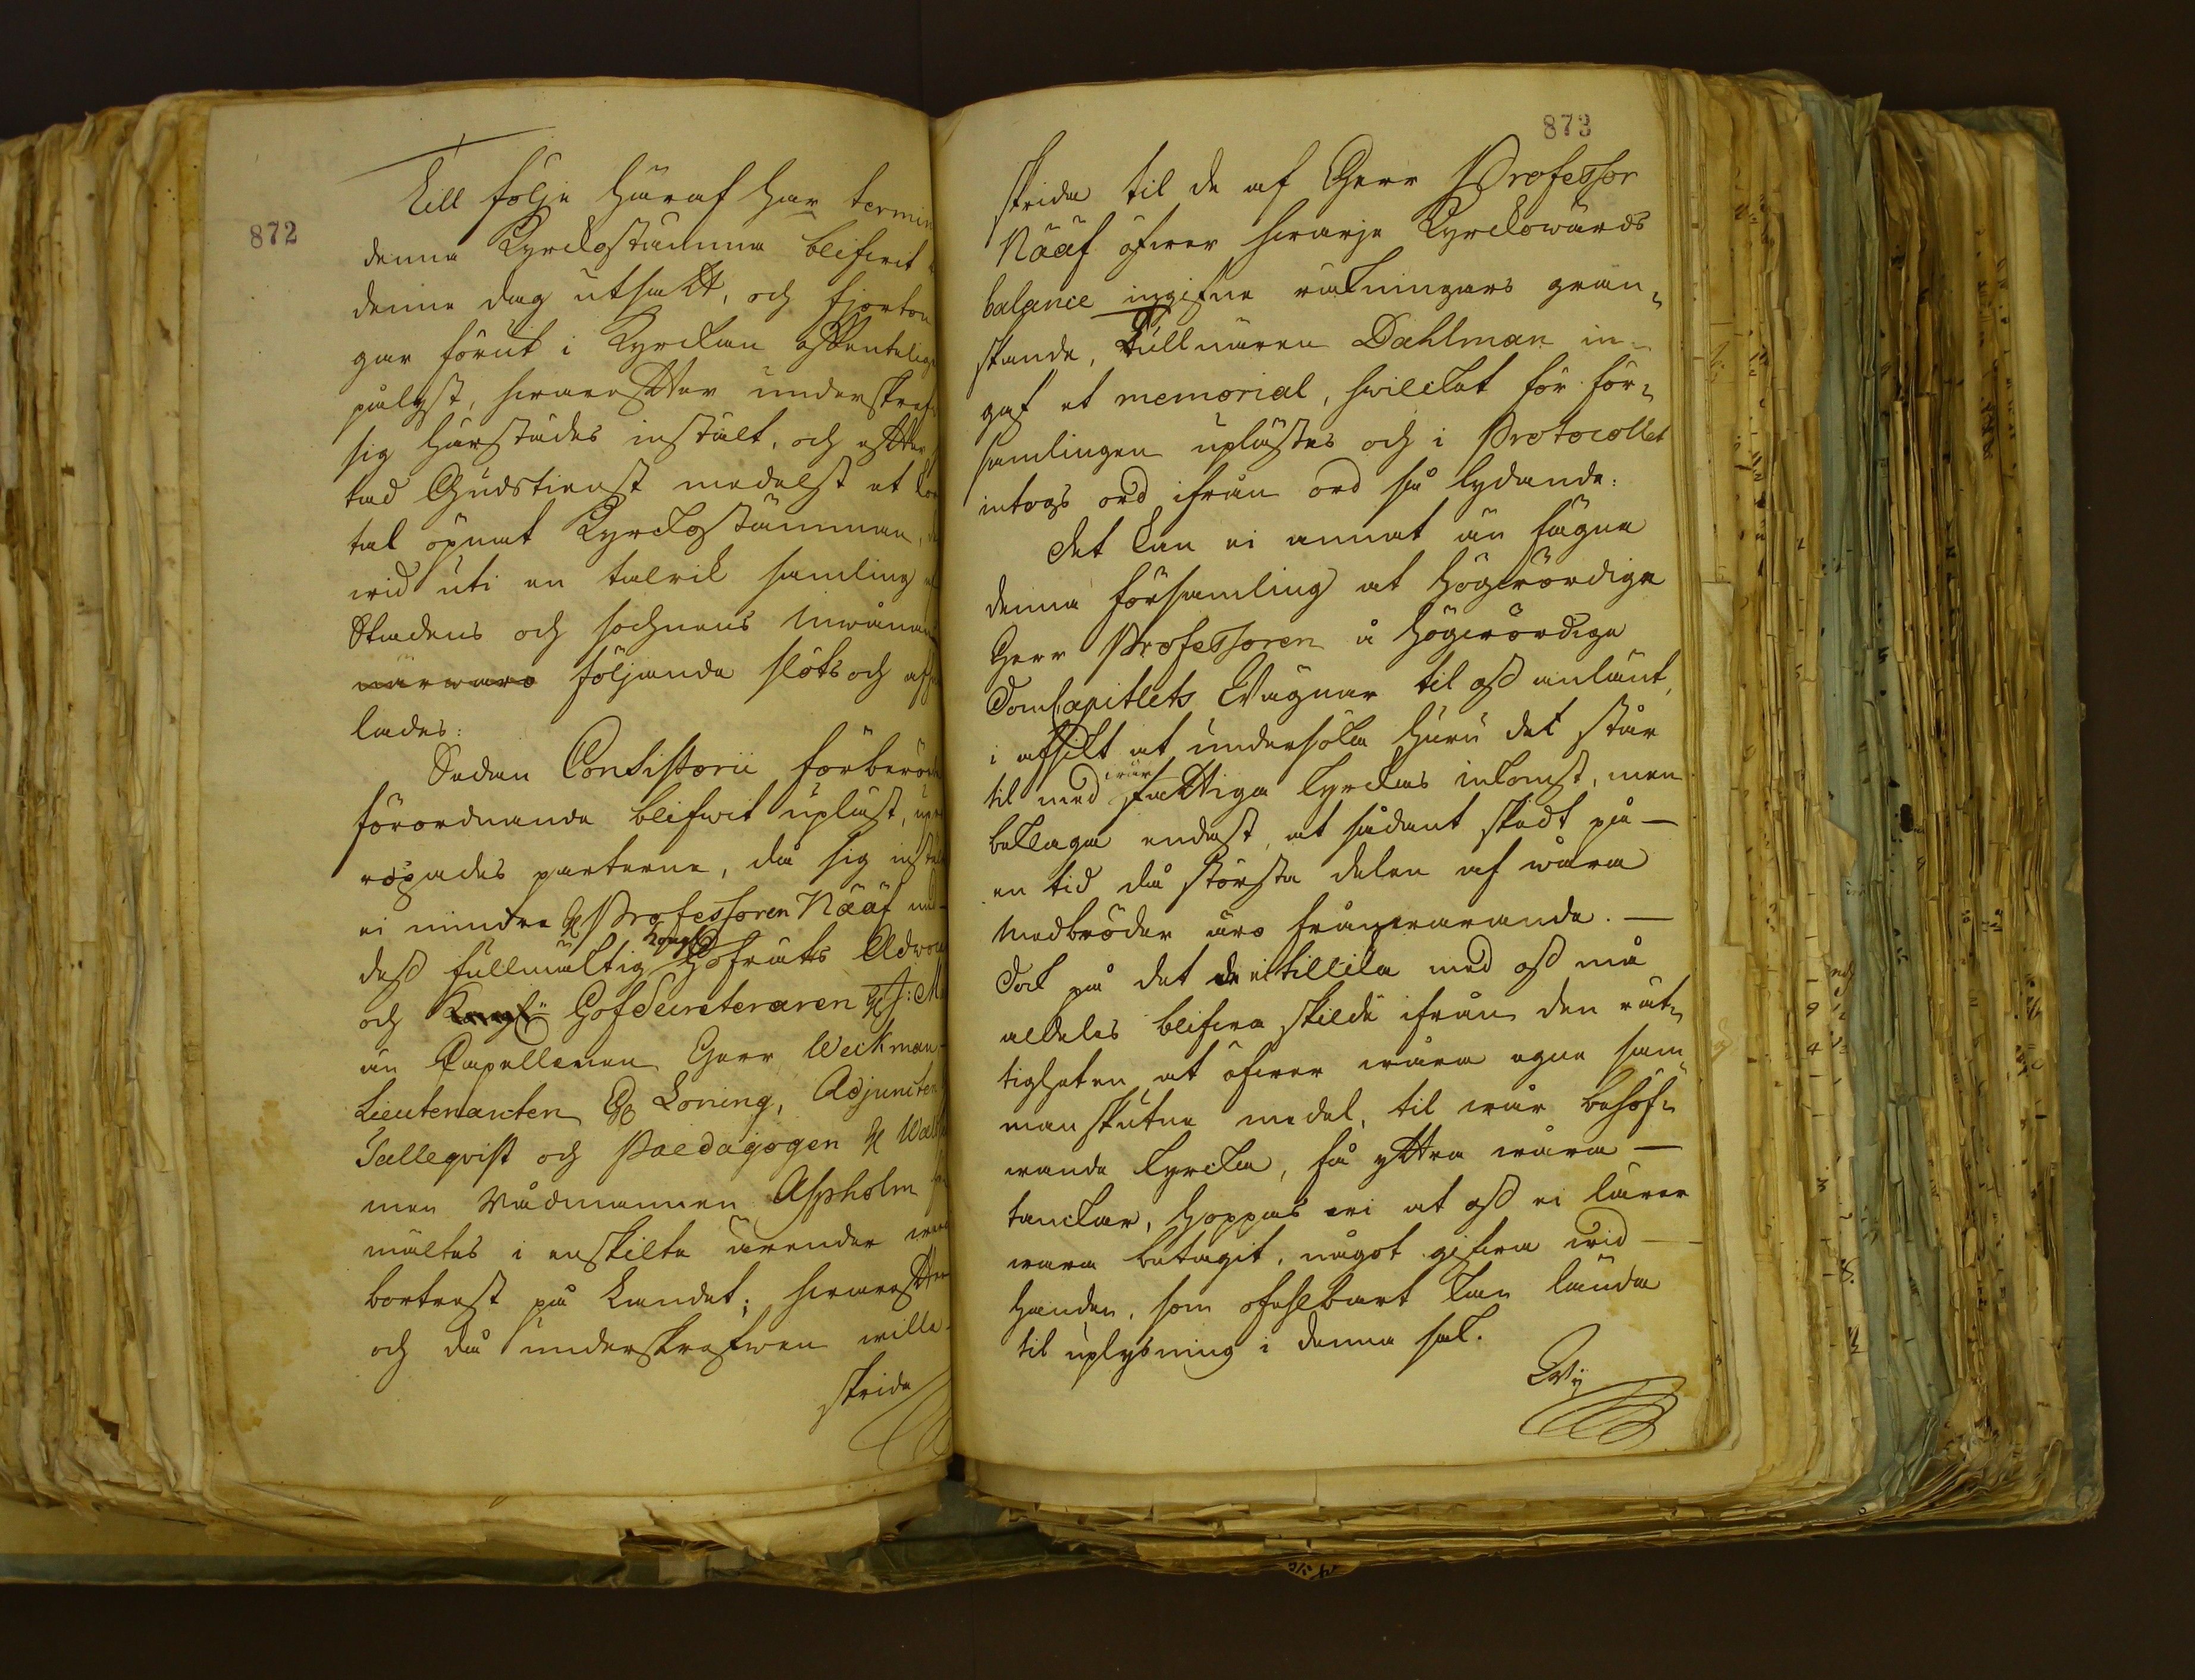 872
Till följe häraf har termin
denna Kyrckostämma blifwit
denne dag utsatt, och fjorton
gar förut i Kyrckan offenteligen
pålyst, hwarefter underskref
sig härstädes instält, och efter
tad Gudstienst medelst et kor
tal öpnat Kyrckostämman,
wid uti en talrik samling af
Stadens och sochnens Inwånare
närwaro följande slöts och afhan
lades:
Sedan Consistorii förberörde
förordnande blifwit upläst, upr
ropades parterne, då sig instält
ei mindre H Professoren Nääf med
dess fullmäktig Kongl. Hofräts Adwoca
och Kongl. HofSecreteraren H J: M
än Capellanen Herr Weckman
Lieutenanten H Loning, Adjuncten
Talleqvist och Paedagogen H Wal
men Rådmannen Aspholm
mältes i enskilte ärender wara
bortrest på Landet; hwarefter
och då underskrefwen wille
skrida
873
skrida til de af Herr Professor
Nääf öfwer hwarje Kyrckowärds
balance ingifne räkningars gran-
skande, Tullnären Dahlman in-
gaf et memorial, hwilcket för för-
samlingen uplästes och i Protocollet
intogs ord ifrån ord så lydande:
Det kan ei annat än fägna
denna församling at Högwördige
Herr Professoren å Högwördige
DomCapitlets Wägnar til oss anländt,
i afsikt at undersöka huru det står
til med wår fattiga kyrckas inkomst, men
beklaga endast, at sådant skedt på —
en tid då största delen af wåra
Medbröder äro frånwarande. —
Dock på det de ei tillika med oss må
aldeles blifwa skilde ifrån den rät-
tigheten at öfwer wåra egne sam-
manskutne medel, til wår behöf-
wande kyrcka, få yttra wåra —
tanckar, hoppas wi at oss ei lärer
wara betagit, något gifwa wid —
handen, som ofehlbart kan lända
til uplysning i denna sak.
Wij